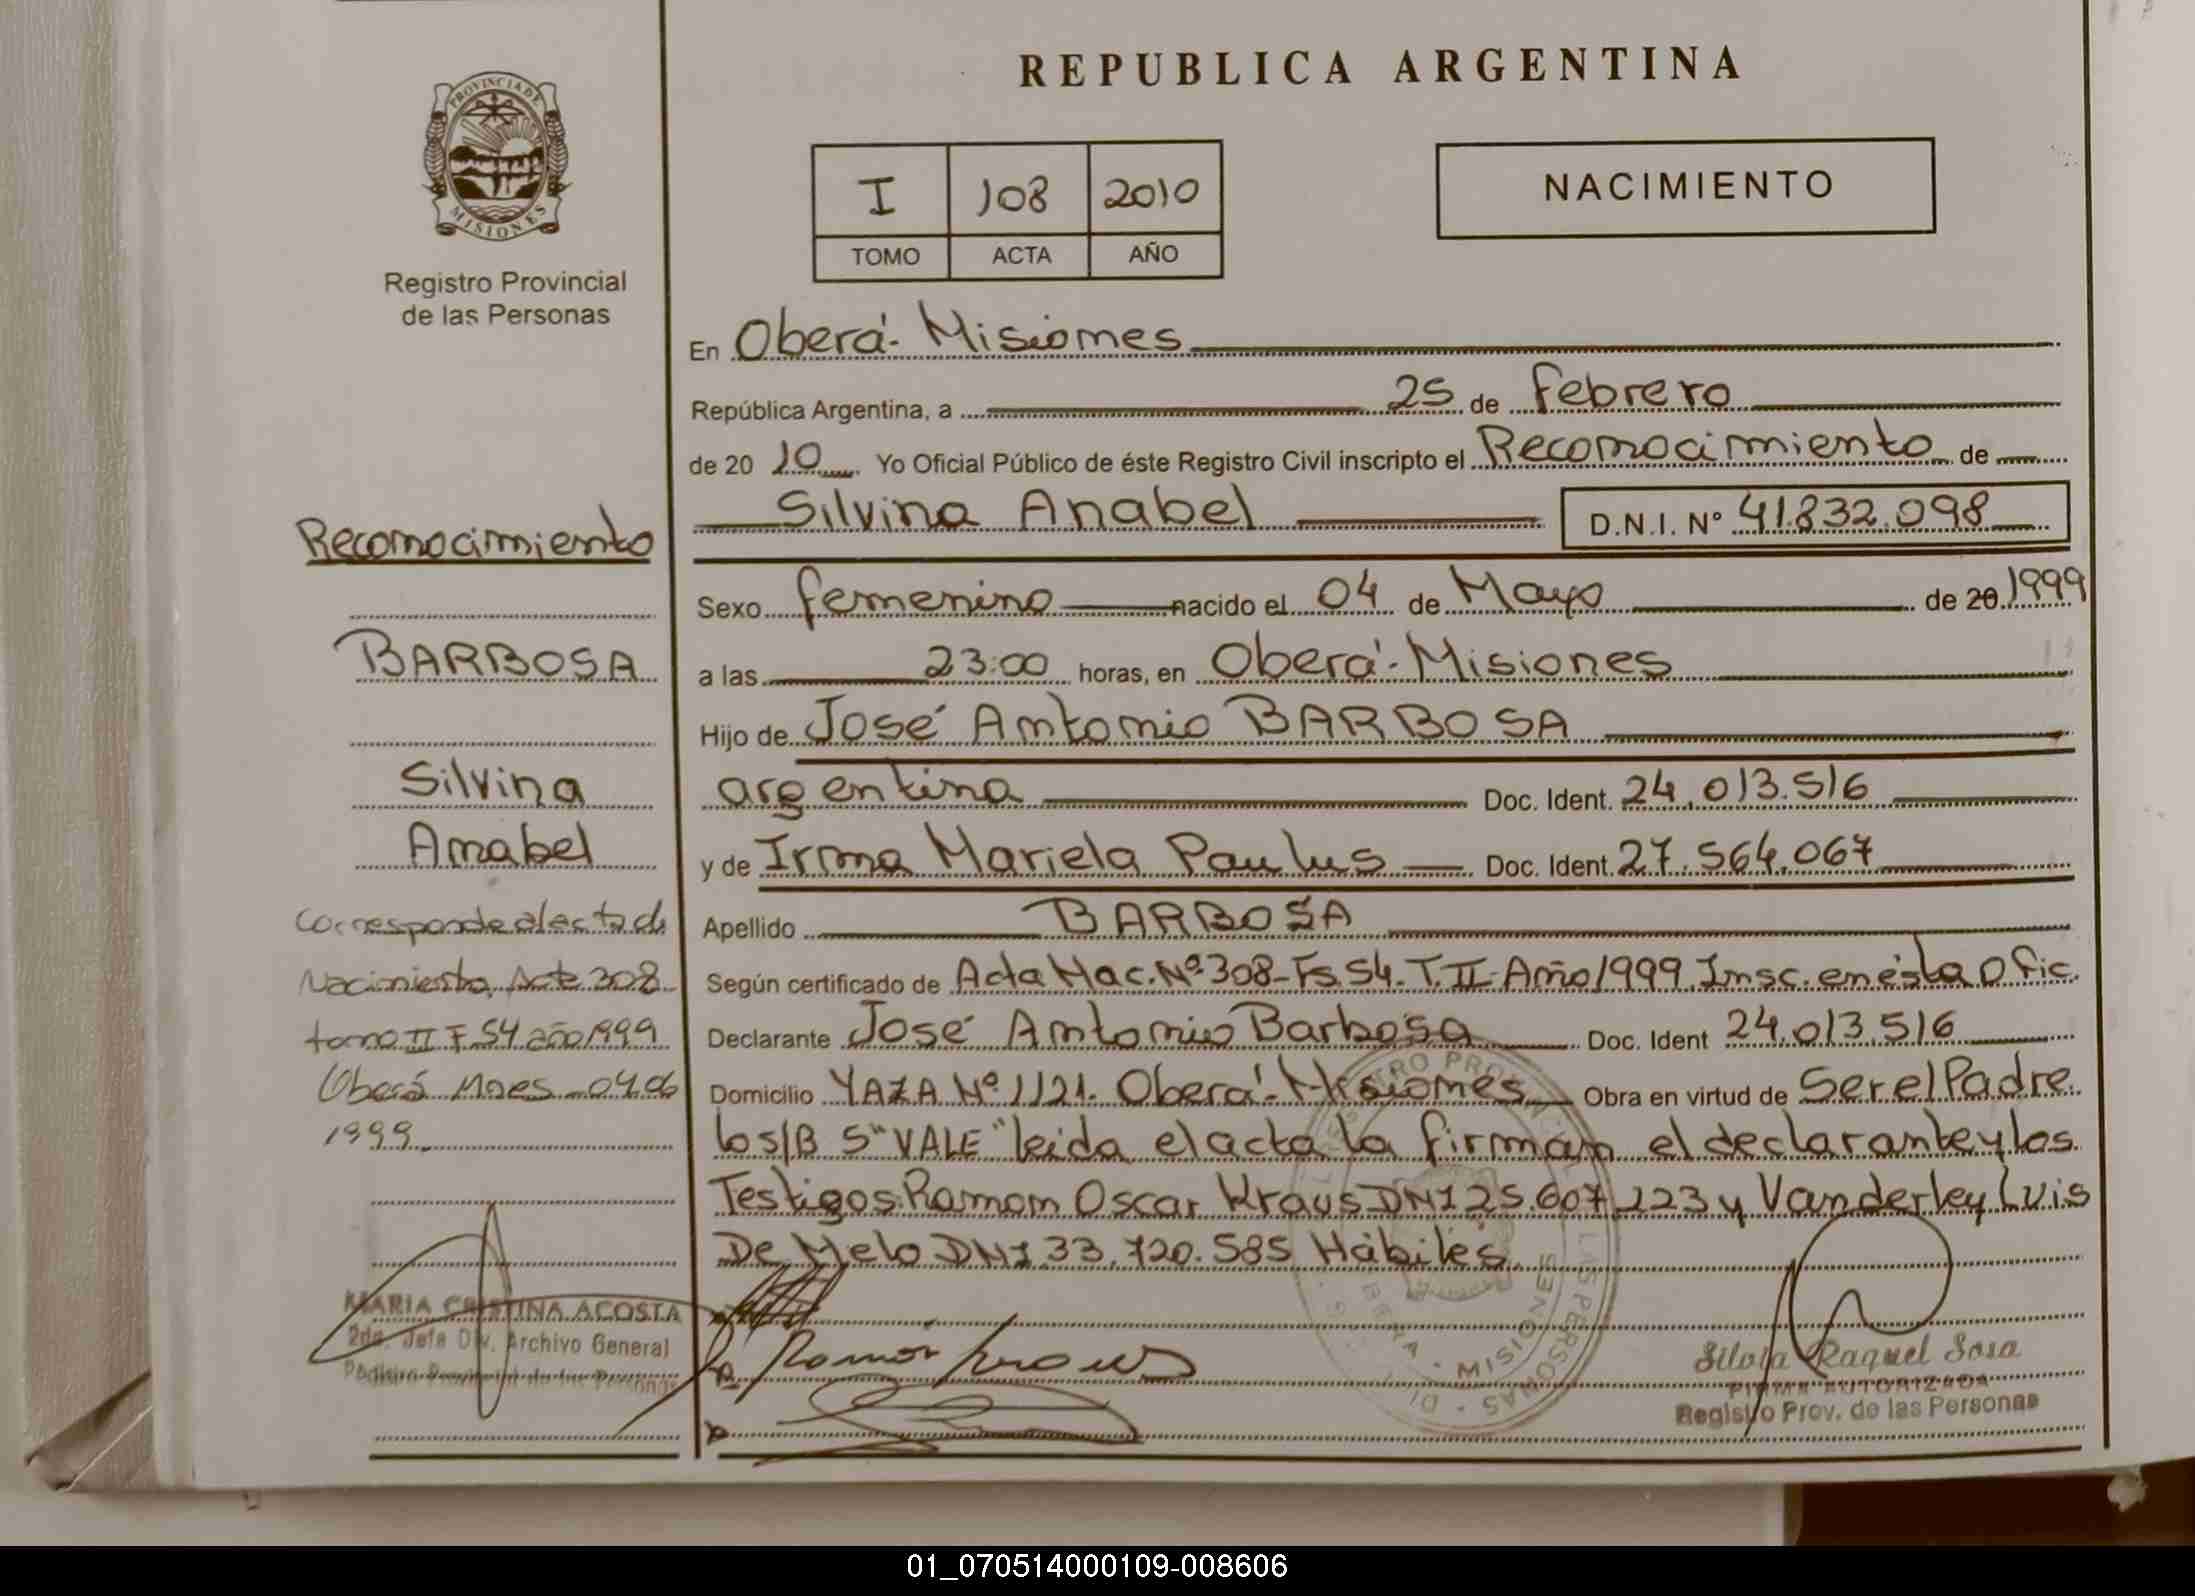 REPUBLICA ARGENTINA
PROVINCIA DE
MISIONES
Registro Provincial
de las Personas
I 108 2010
TOMO ACTA AÑO
NACIMIENTO
En Oberá - Misiones
República Argentina, a 25 de febrero
de 20 10 Yo Oficial Público de éste Registro Civil inscripto el Reconocimiento de
Silvina Anabel D.N.I. Nº 41.832.098
Sexo femenino nacido el 04 de Mayo de 20 1999
a las 23:00 horas, en Oberá - Misiones
Hijo de José Antonio BARBOSA
argentina Doc. Ident. 24.013.516
y de Irma Mariela Paulus Doc. Ident. 27.564.067
Apellido BARBOSA
Según certificado de Acta Nac. Nº 308 - Fs. 54 - T. II - Año 1999. Insc. en ésta Ofic.
Declarante José Antonio Barbosa Doc. Ident 24.013.516
Domicilio YAZA Nº 1121. Oberá - Misiones Obra en virtud de Ser el Padre.
lo s/B 5 "VALE" leida el acta la firman el declarante y los
Testigos: Ramon Oscar Kraus DNI 25.607.223 y Vanderley Luis
De Melo DNI 33.720.585 Hábiles.
Reconocimiento
BARBOSA
Silvina
Anabel
Corresponde al acta de
Nacimiento Acta 308
tomo II F 54 año 1999
Oberá Mnes 04.06
1999
MARIA CRISTINA ACOSTA
2da. Jefa Div. Archivo General
Registro Provincial de las Personas
Ramón Kraus
REGISTRO PROVINCIAL DE LAS PERSONAS
MISIONES
Silvia Raquel Sosa
FIRMA AUTORIZADA
Registro Prov. de las Personas
01_070514000109-008606